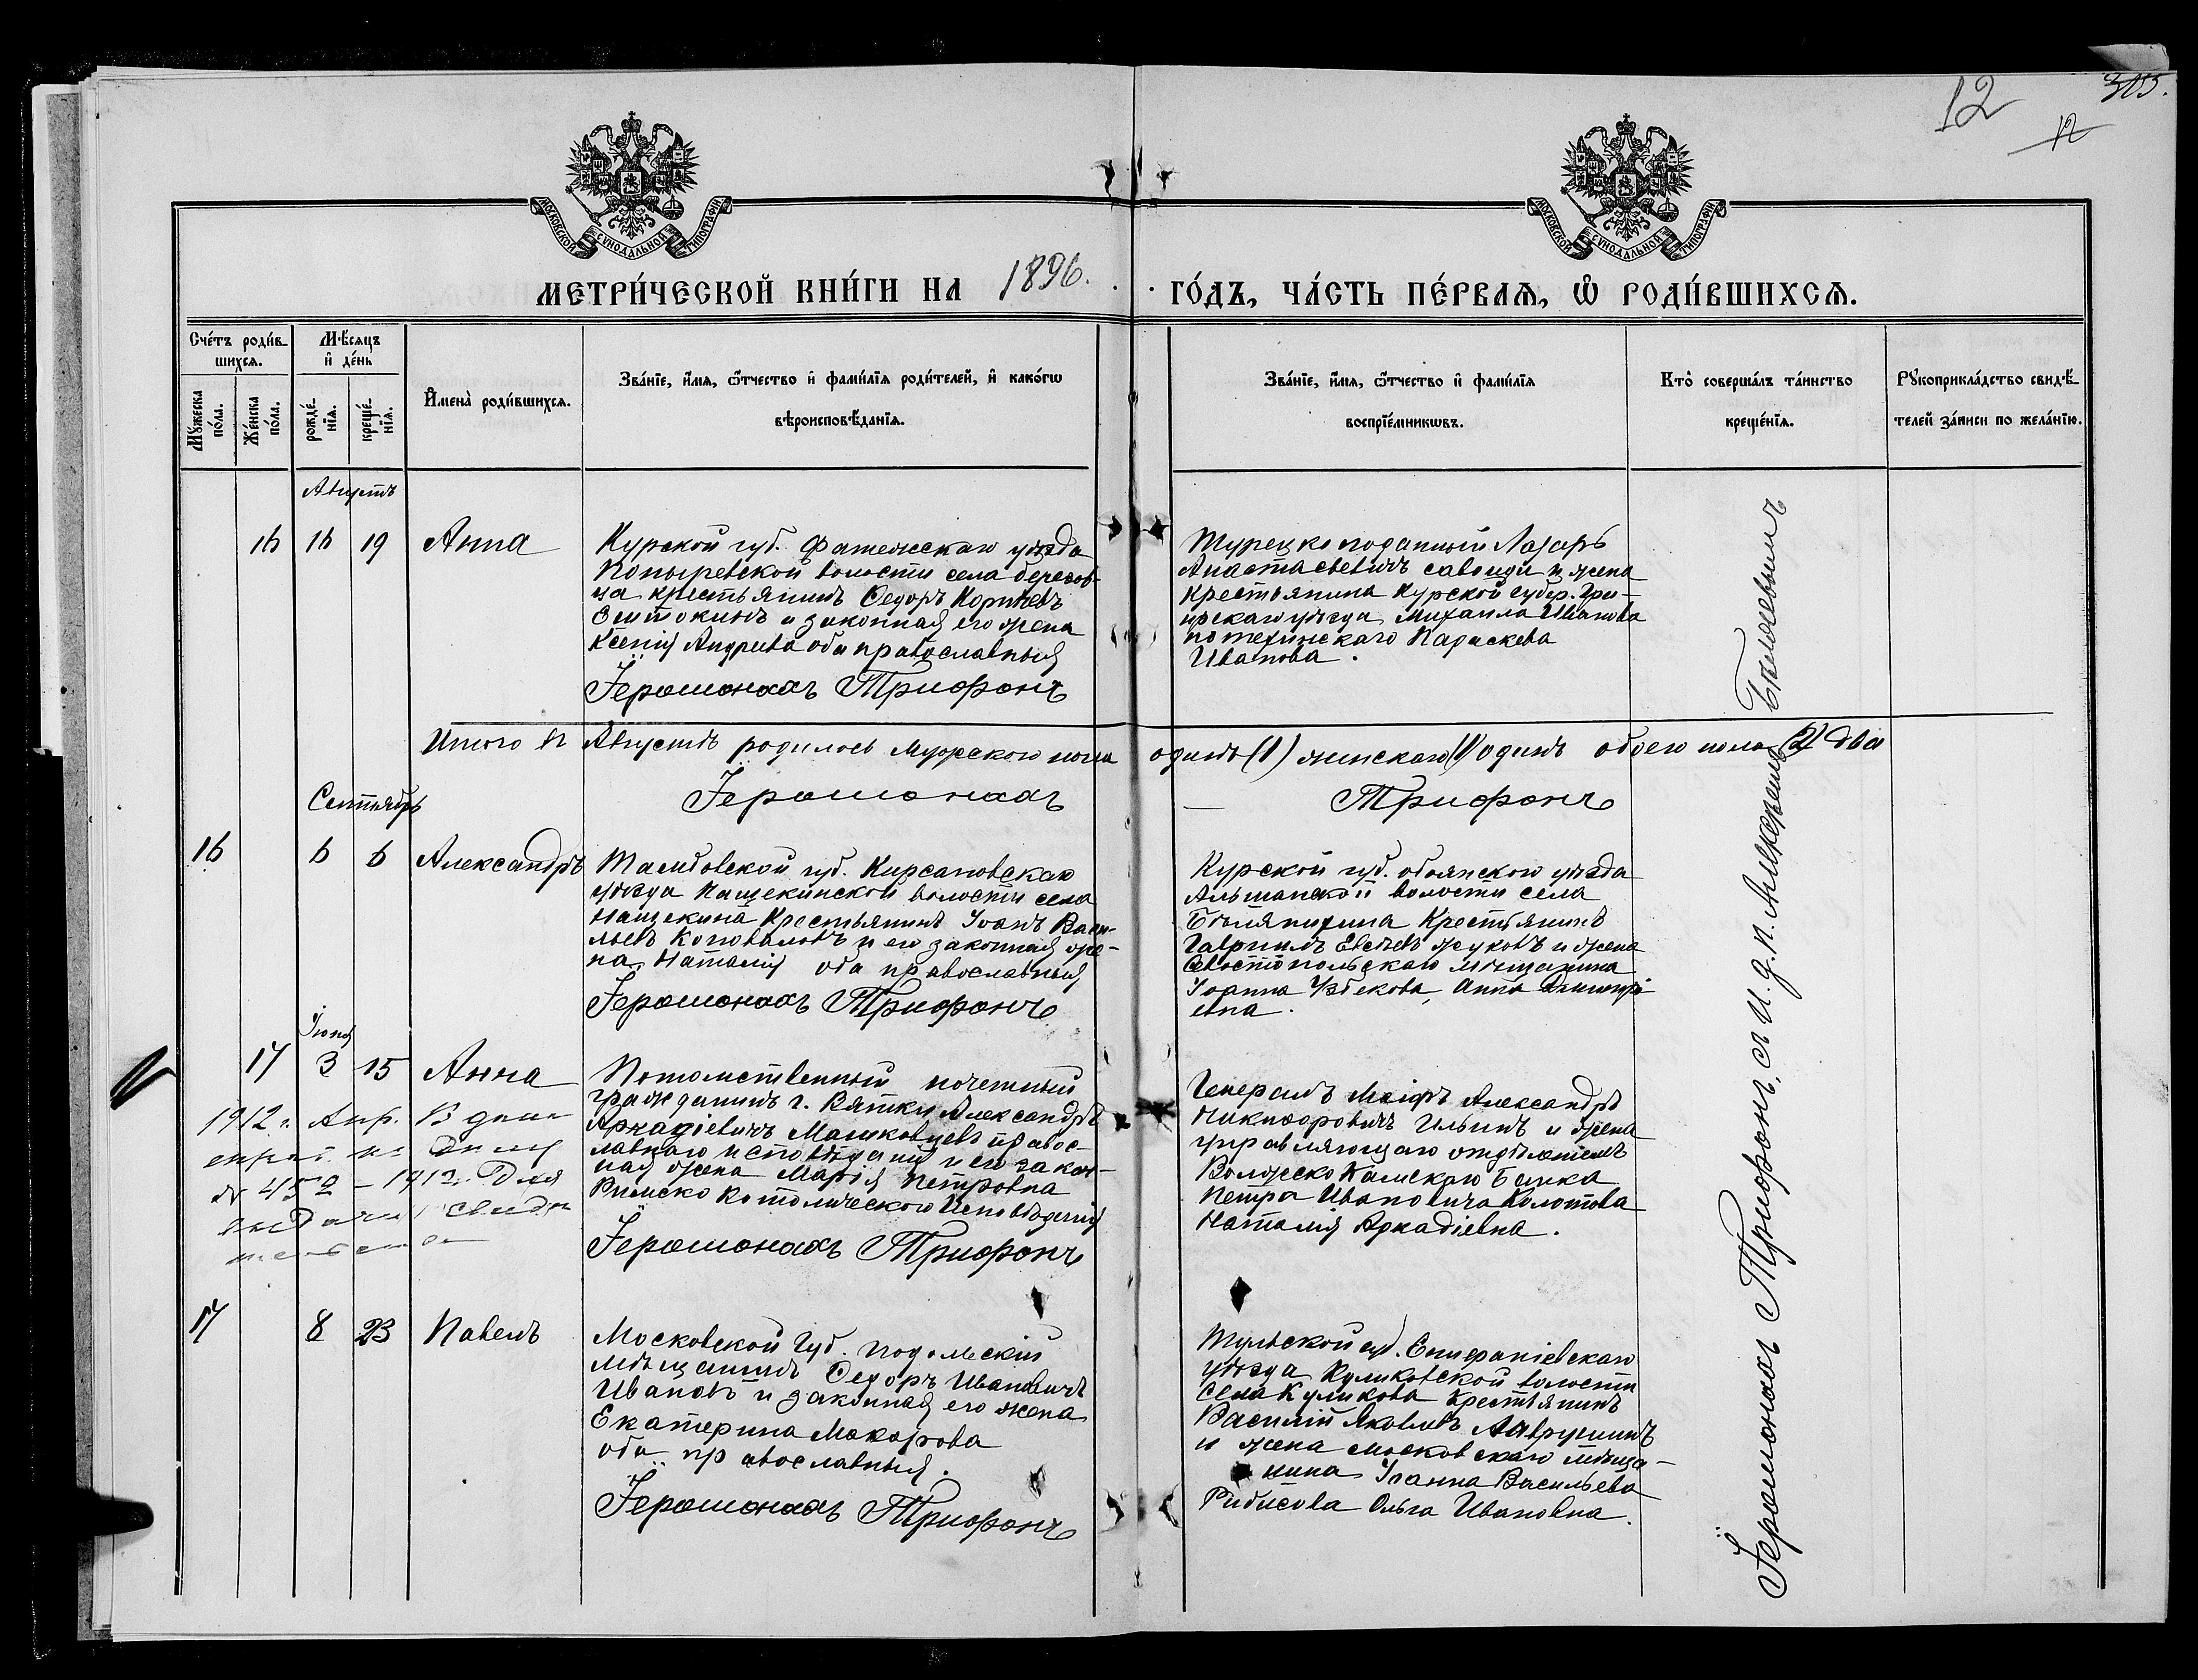 12
305.
12
МОСКОВСКОЙ СУНОДАЛЬНОЙ ТИПОГРАФІИ
МОСКОВСКОЙ СУНОДАЛЬНОЙ ТИПОГРАФІИ
МЕТРИ́ЧЕСКОЙ КНИ́ГИ НА 1896. ГО́ДЪ, ЧА́СТЬ ПЕ́РВАЯ, Ѡ҆ РОДИ́ВШИХСЯ.
Сче́тъ роди́в-
шихся.
Мѣ́сяцъ
и҆ де́нь
Мꙋ́жеска
по́ла.
Же́нска
по́ла.
рожде́-
нїя.
креще́-
нїя.
И҆мена̀ роди́вшихся.
Зва́нїе, и҆́мя, ѻ҆́тчество и҆ фами́лїя роди́телей, и҆ како́гѡ
вѣроисповѣ́данїя.
Зва́нїе, и҆́мя, ѻ҆́тчество и҆ фами́лїя
воспрїе́мникѡвъ.
Кто̀ соверша́лъ та́инство
креще́нїя.
Рꙋкоприкла́дство свидѣ́-
телей за́писи по жела́нїю.
Августъ
16 16 19 Анна
Курской губ. Фатежскаго уѣзда
волости села
крестьянинъ Ѳедоръ
и законная его жена
Ксенія Андреева оба православныя
Іеромонахъ Трифонъ
Турецко поданный Лазарь
и жена
Крестьянина Курской губер.
уѣзда Михаила Иванова
Параскева
Иванова.
Итого въ Августѣ родилось Мужскаго пола одинъ (1) женскаго (1) одинъ обоего пола (2) два
Іеромонахъ Трифонъ
Сентябрь
16 6 6 Александръ
Тамбовской губ. Кирсановскаго
уѣзда Нащекинской волости села
Нащекина Крестьянинъ Іоанъ Васи-
льевъ Коноваловъ и его законная же-
на Наталія оба православныя
Іеромонахъ Трифонъ
Курской губ. обоянскаго уѣзда
волости села
Крестьянинъ
Гавріилъ Жуковъ и жена
Севостопольскаго мѣщанина
Іоанна Узбекова, Анна Димитрі-
евна.
Іюня
17 3 15 Анна
Потомственный почетный
гражданинъ г. Вятки Александръ
Аркадіевичъ Машковцевъ правос-
лавнаго исповѣданія и его закон-
ная жена Марія Петровна
Римско Католическаго Исповѣданія
Іеромонахъ Трифонъ
1912 г. Апр.
№ 452 – 1912. Для
выдачи свидѣ
тельства
Генералъ Маіоръ Александръ
Никифоровичъ Ильинъ и жена
управляющаго отдѣленіемъ
Волжско Камскаго Банка
Петра Ивановича Колотова
Наталія Аркадіевна.
17 8 23 Павелъ
Московской Губ. Подольскій
Мѣщанинъ Ѳедоръ Ивановичъ
Ивановъ и законная его жена
Екатерина Макарова
оба православныя.
Іеромонахъ Трифонъ
Тульской губ. Епифаніевскаго
уѣзда Куликовской волости
Села Куликова Крестьянинъ
Василій Яковлевъ Лаврушинъ
и жена московскаго мѣща-
нина Іоанна Васильева
Ольга Ивановна.
Іеромонахъ Трифонъ, съ И. д. п. Алексѣемъ Бѣляевымъ